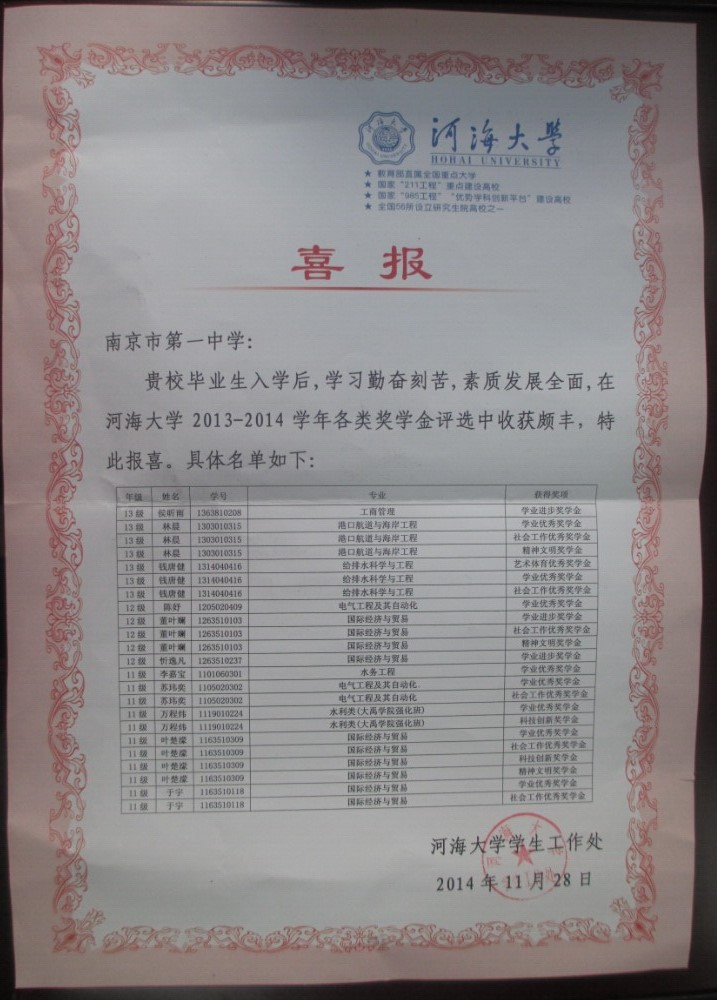 河海大学
HOHAI UNIVERSITY
★ 教育部直属全国重点大学
★ 国家“211工程”重点建设高校
★ 国家“985工程”“优势学科创新平台”建设高校
★ 全国56所设立研究生院高校之一
喜报
南京市第一中学：
贵校毕业生入学后，学习勤奋刻苦，素质发展全面，在
河海大学 2013-2014 学年各类奖学金评选中收获颇丰，特
此报喜。具体名单如下：
年级 姓名 学号 专业 获得奖项
13 级 侯昕雨 1363810208 工商管理 学业进步奖学金
13 级 林晨 1303010315 港口航道与海岸工程 学业优秀奖学金
13 级 林晨 1303010315 港口航道与海岸工程 社会工作优秀奖学金
13 级 林晨 1303010315 港口航道与海岸工程 精神文明奖学金
13 级 钱唐健 1314040416 给排水科学与工程 艺术体育优秀奖学金
13 级 钱唐健 1314040416 给排水科学与工程 学业优秀奖学金
13 级 钱唐健 1314040416 给排水科学与工程 社会工作优秀奖学金
12 级 陈妤 1205020409 电气工程及其自动化 学业优秀奖学金
12 级 董叶斓 1263510103 国际经济与贸易 学业优秀奖学金
12 级 董叶斓 1263510103 国际经济与贸易 社会工作优秀奖学金
12 级 董叶斓 1263510103 国际经济与贸易 精神文明奖学金
12 级 忻逸凡 1263510237 国际经济与贸易 学业进步奖学金
11 级 李嘉宝 1101060301 水务工程 学业优秀奖学金
11 级 苏玮奕 1105020302 电气工程及其自动化 学业优秀奖学金
11 级 苏玮奕 1105020302 电气工程及其自动化 社会工作优秀奖学金
11 级 万程炜 1119010224 水利类(大禹学院强化班) 学业优秀奖学金
11 级 万程炜 1119010224 水利类(大禹学院强化班) 科技创新奖学金
11 级 叶楚濛 1163510309 国际经济与贸易 学业优秀奖学金
11 级 叶楚濛 1163510309 国际经济与贸易 社会工作优秀奖学金
11 级 叶楚濛 1163510309 国际经济与贸易 科技创新奖学金
11 级 叶楚濛 1163510309 国际经济与贸易 精神文明奖学金
11 级 于宇 1163510118 国际经济与贸易 学业优秀奖学金
11 级 于宇 1163510118 国际经济与贸易 社会工作优秀奖学金
河海大学学生工作处
2014 年 11 月 28 日